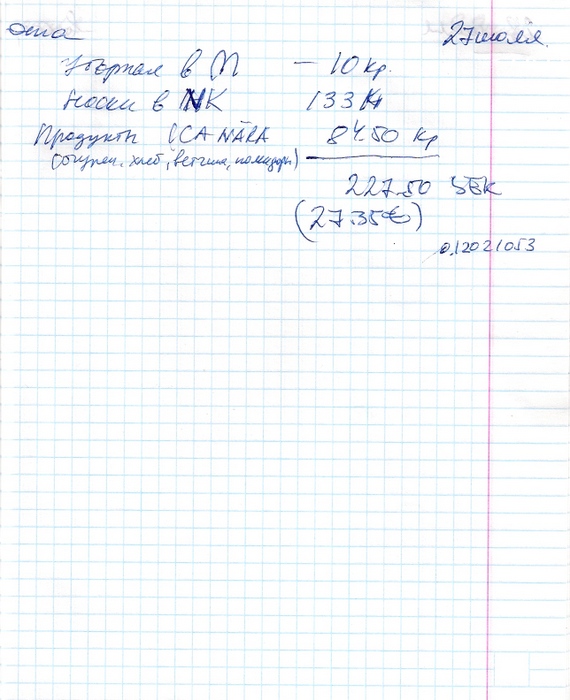 27 июля.
в М — 10 кр.
Носки в NK 133 Kr
Продукты ICA NÄRA 84.50 кр
(огурец, хлеб, ветчина, помидоры)
227.50 SEK
(27.35€)
0.12021053